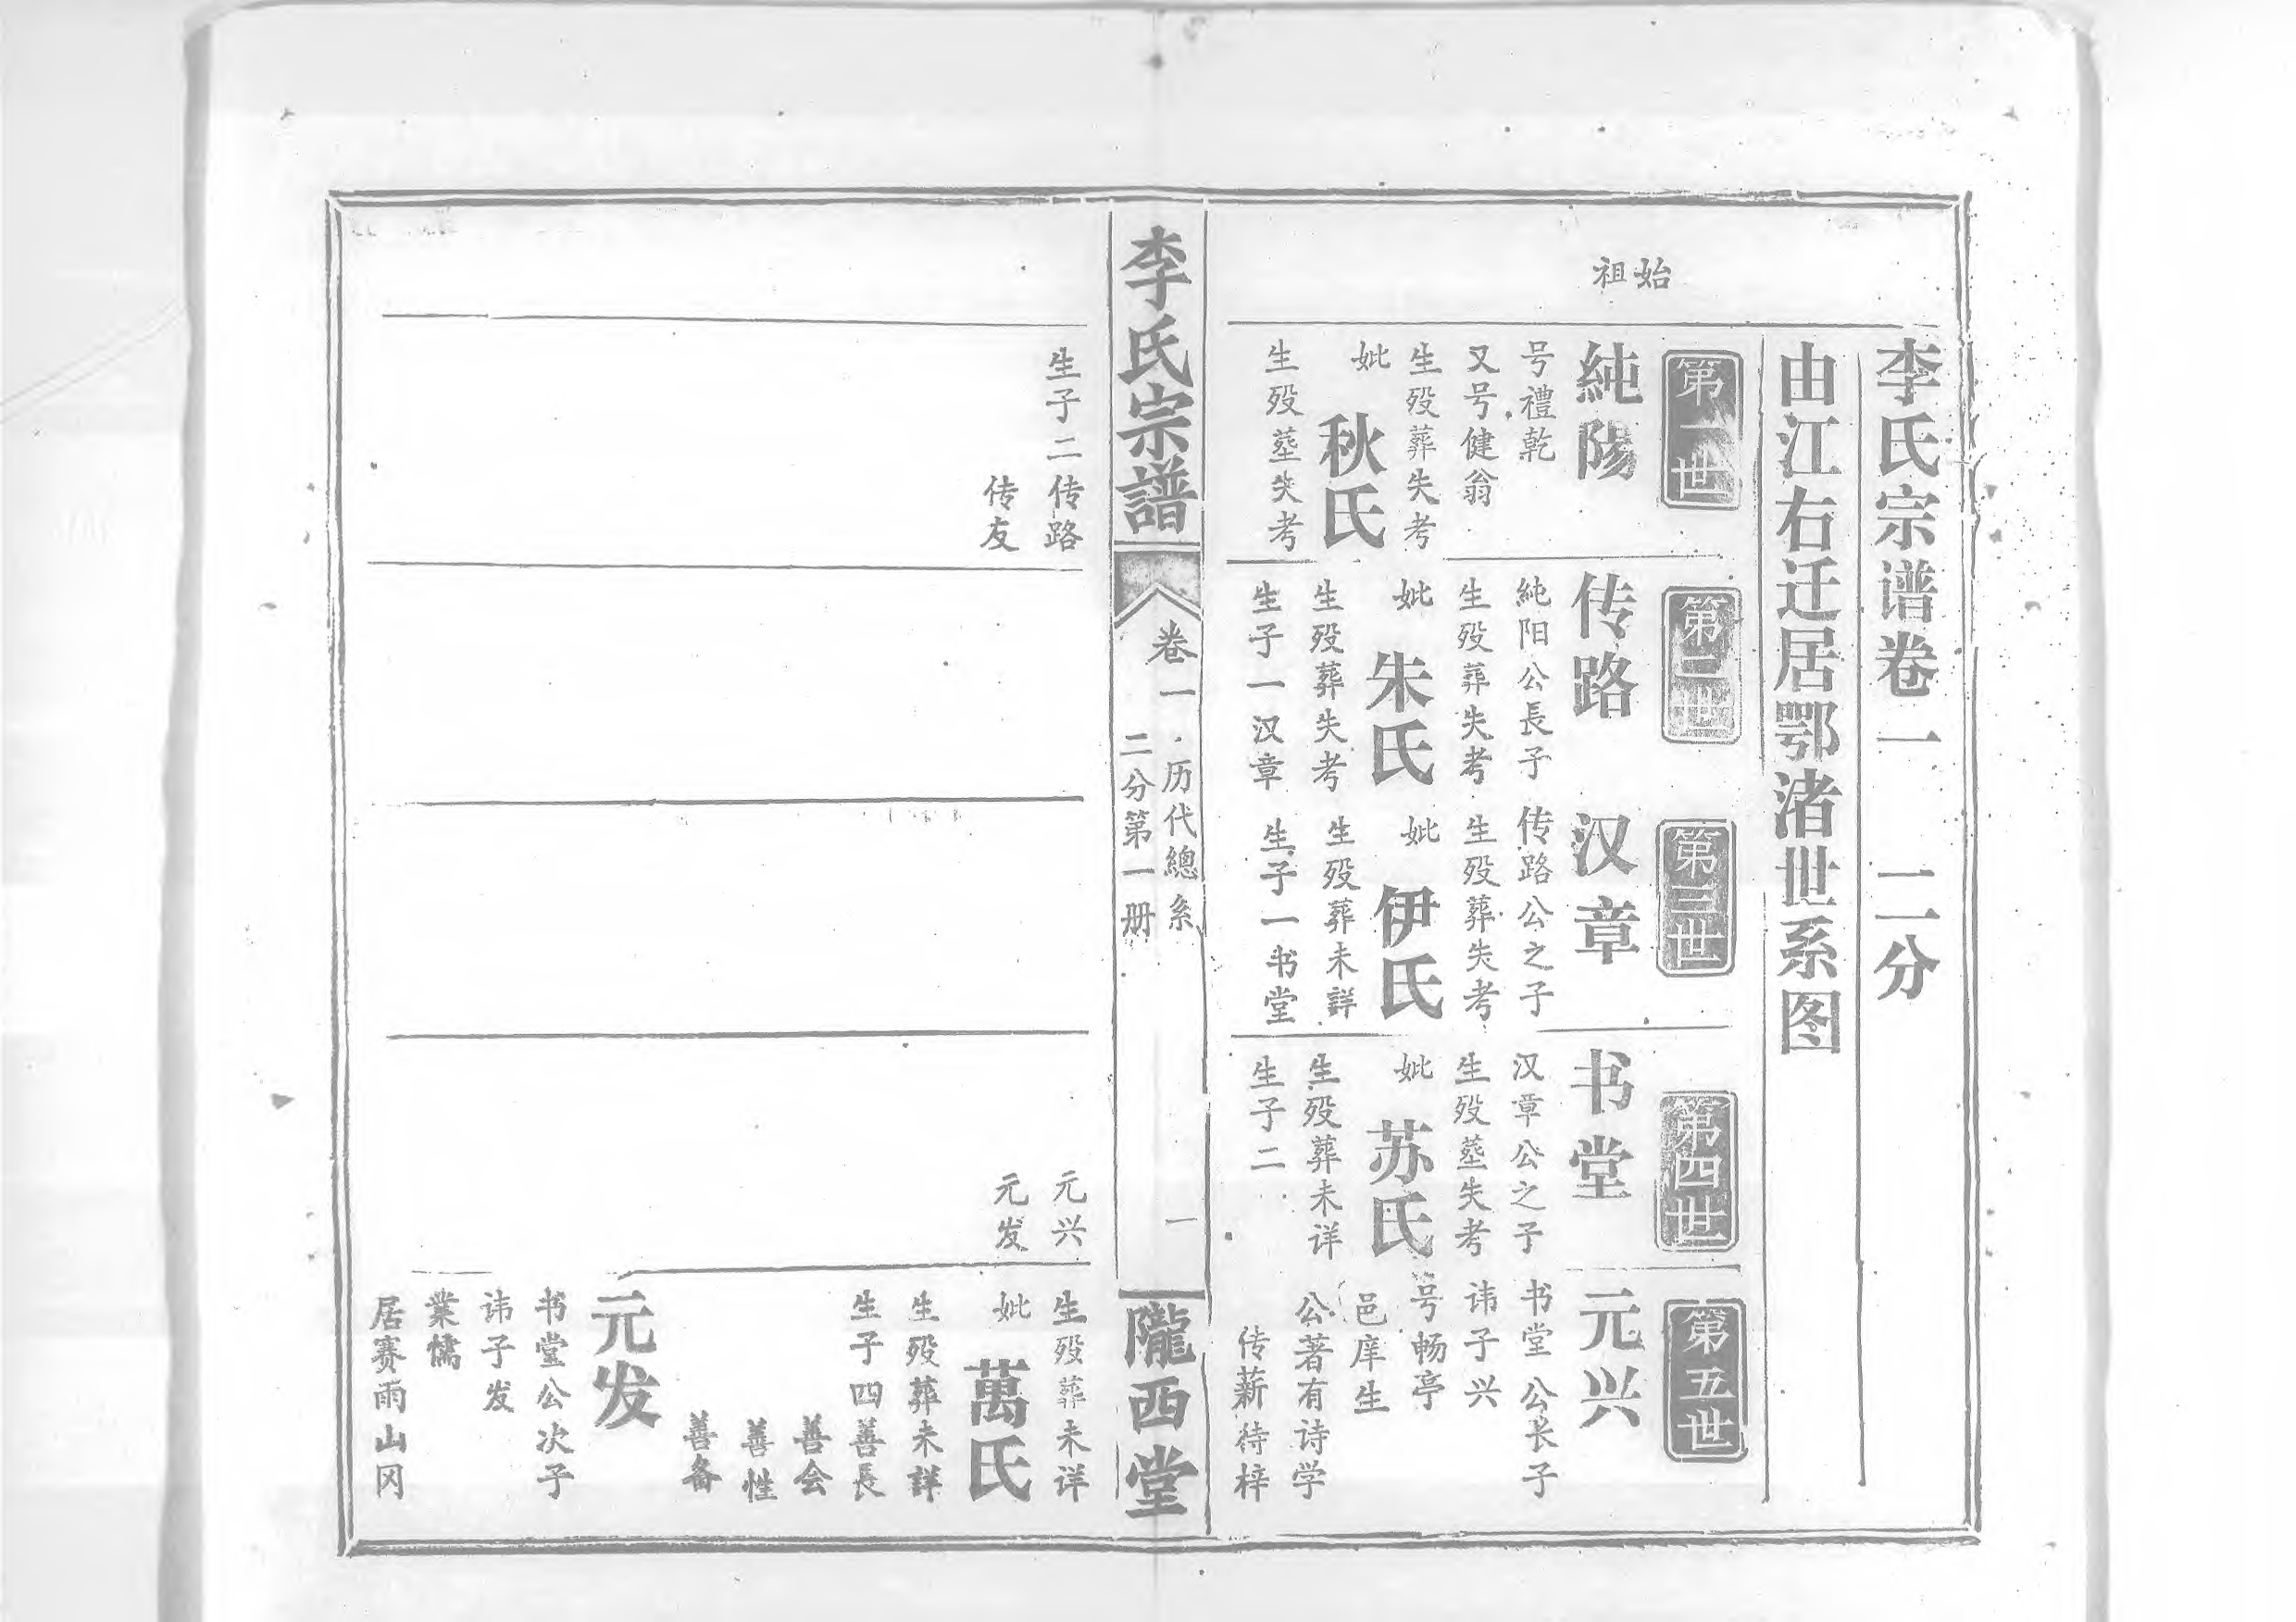 李氏宗谱卷一 二分
由江右迁居鄂渚世系图
始祖
第一世
純陽
号禮乾
又号健翁
生殁葬失考
妣 秋氏
生殁塟失考
生子二 传路
传友
第二世
传路
純阳公長子
生殁葬失考
妣 朱氏
生殁葬失考
生子一汉章
第三世
汉章
传路公之子
生殁葬失考
妣 伊氏
生殁葬未詳
生子一书堂
第四世
书堂
汉章公之子
生殁塟失考
妣 苏氏
生殁葬未详
生子二
元兴
元发
第五世
元兴
书堂公长子
讳子兴
号畅亭
邑庠生
公著有诗学
传薪待梓
生殁葬未详
妣 萬氏
生殁葬未詳
生子四善長
善会
善性
善备
元发
书堂公次子
讳子发
業儒
居赛雨山冈
李氏宗譜
卷一
历代總系
二分第一册
一
隴西堂